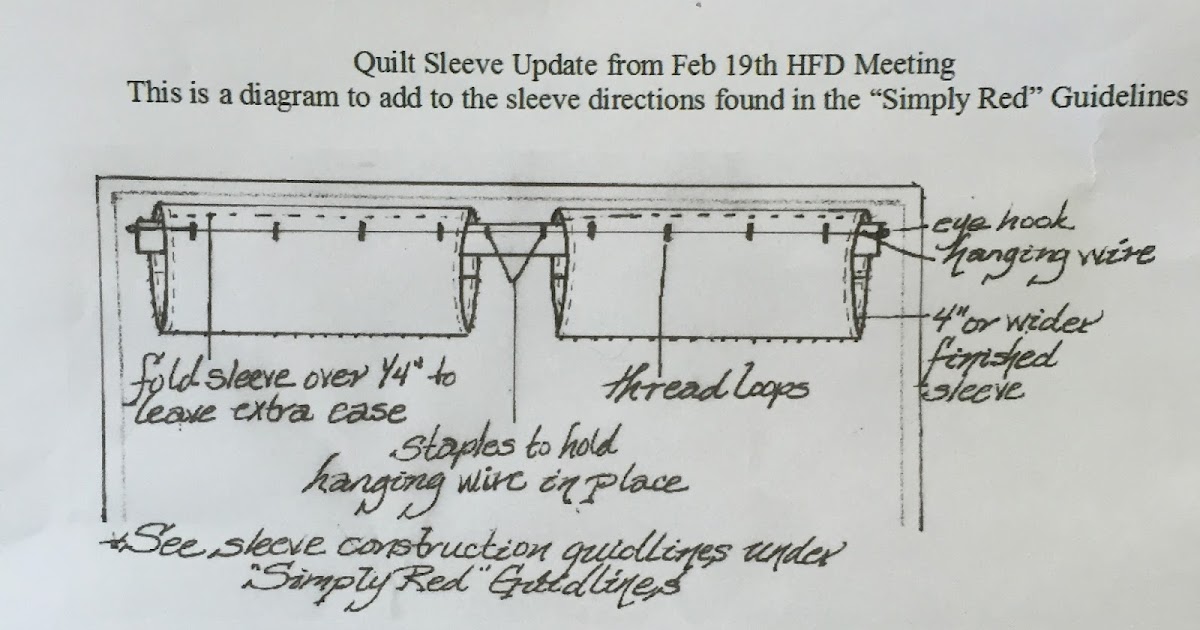 Quilt Sleeve Update from Feb 19th HFD Meeting
This is a diagram to add to the sleeve directions found in the “Simply Red” Guidelines
eye hook
hanging wire
4" or wider
finished
sleeve
fold sleeve over 1/4" to
leave extra ease
thread loops
staples to hold
hanging wire in place
*See sleeve construction guidlines under
"Simply Red" Guidlines